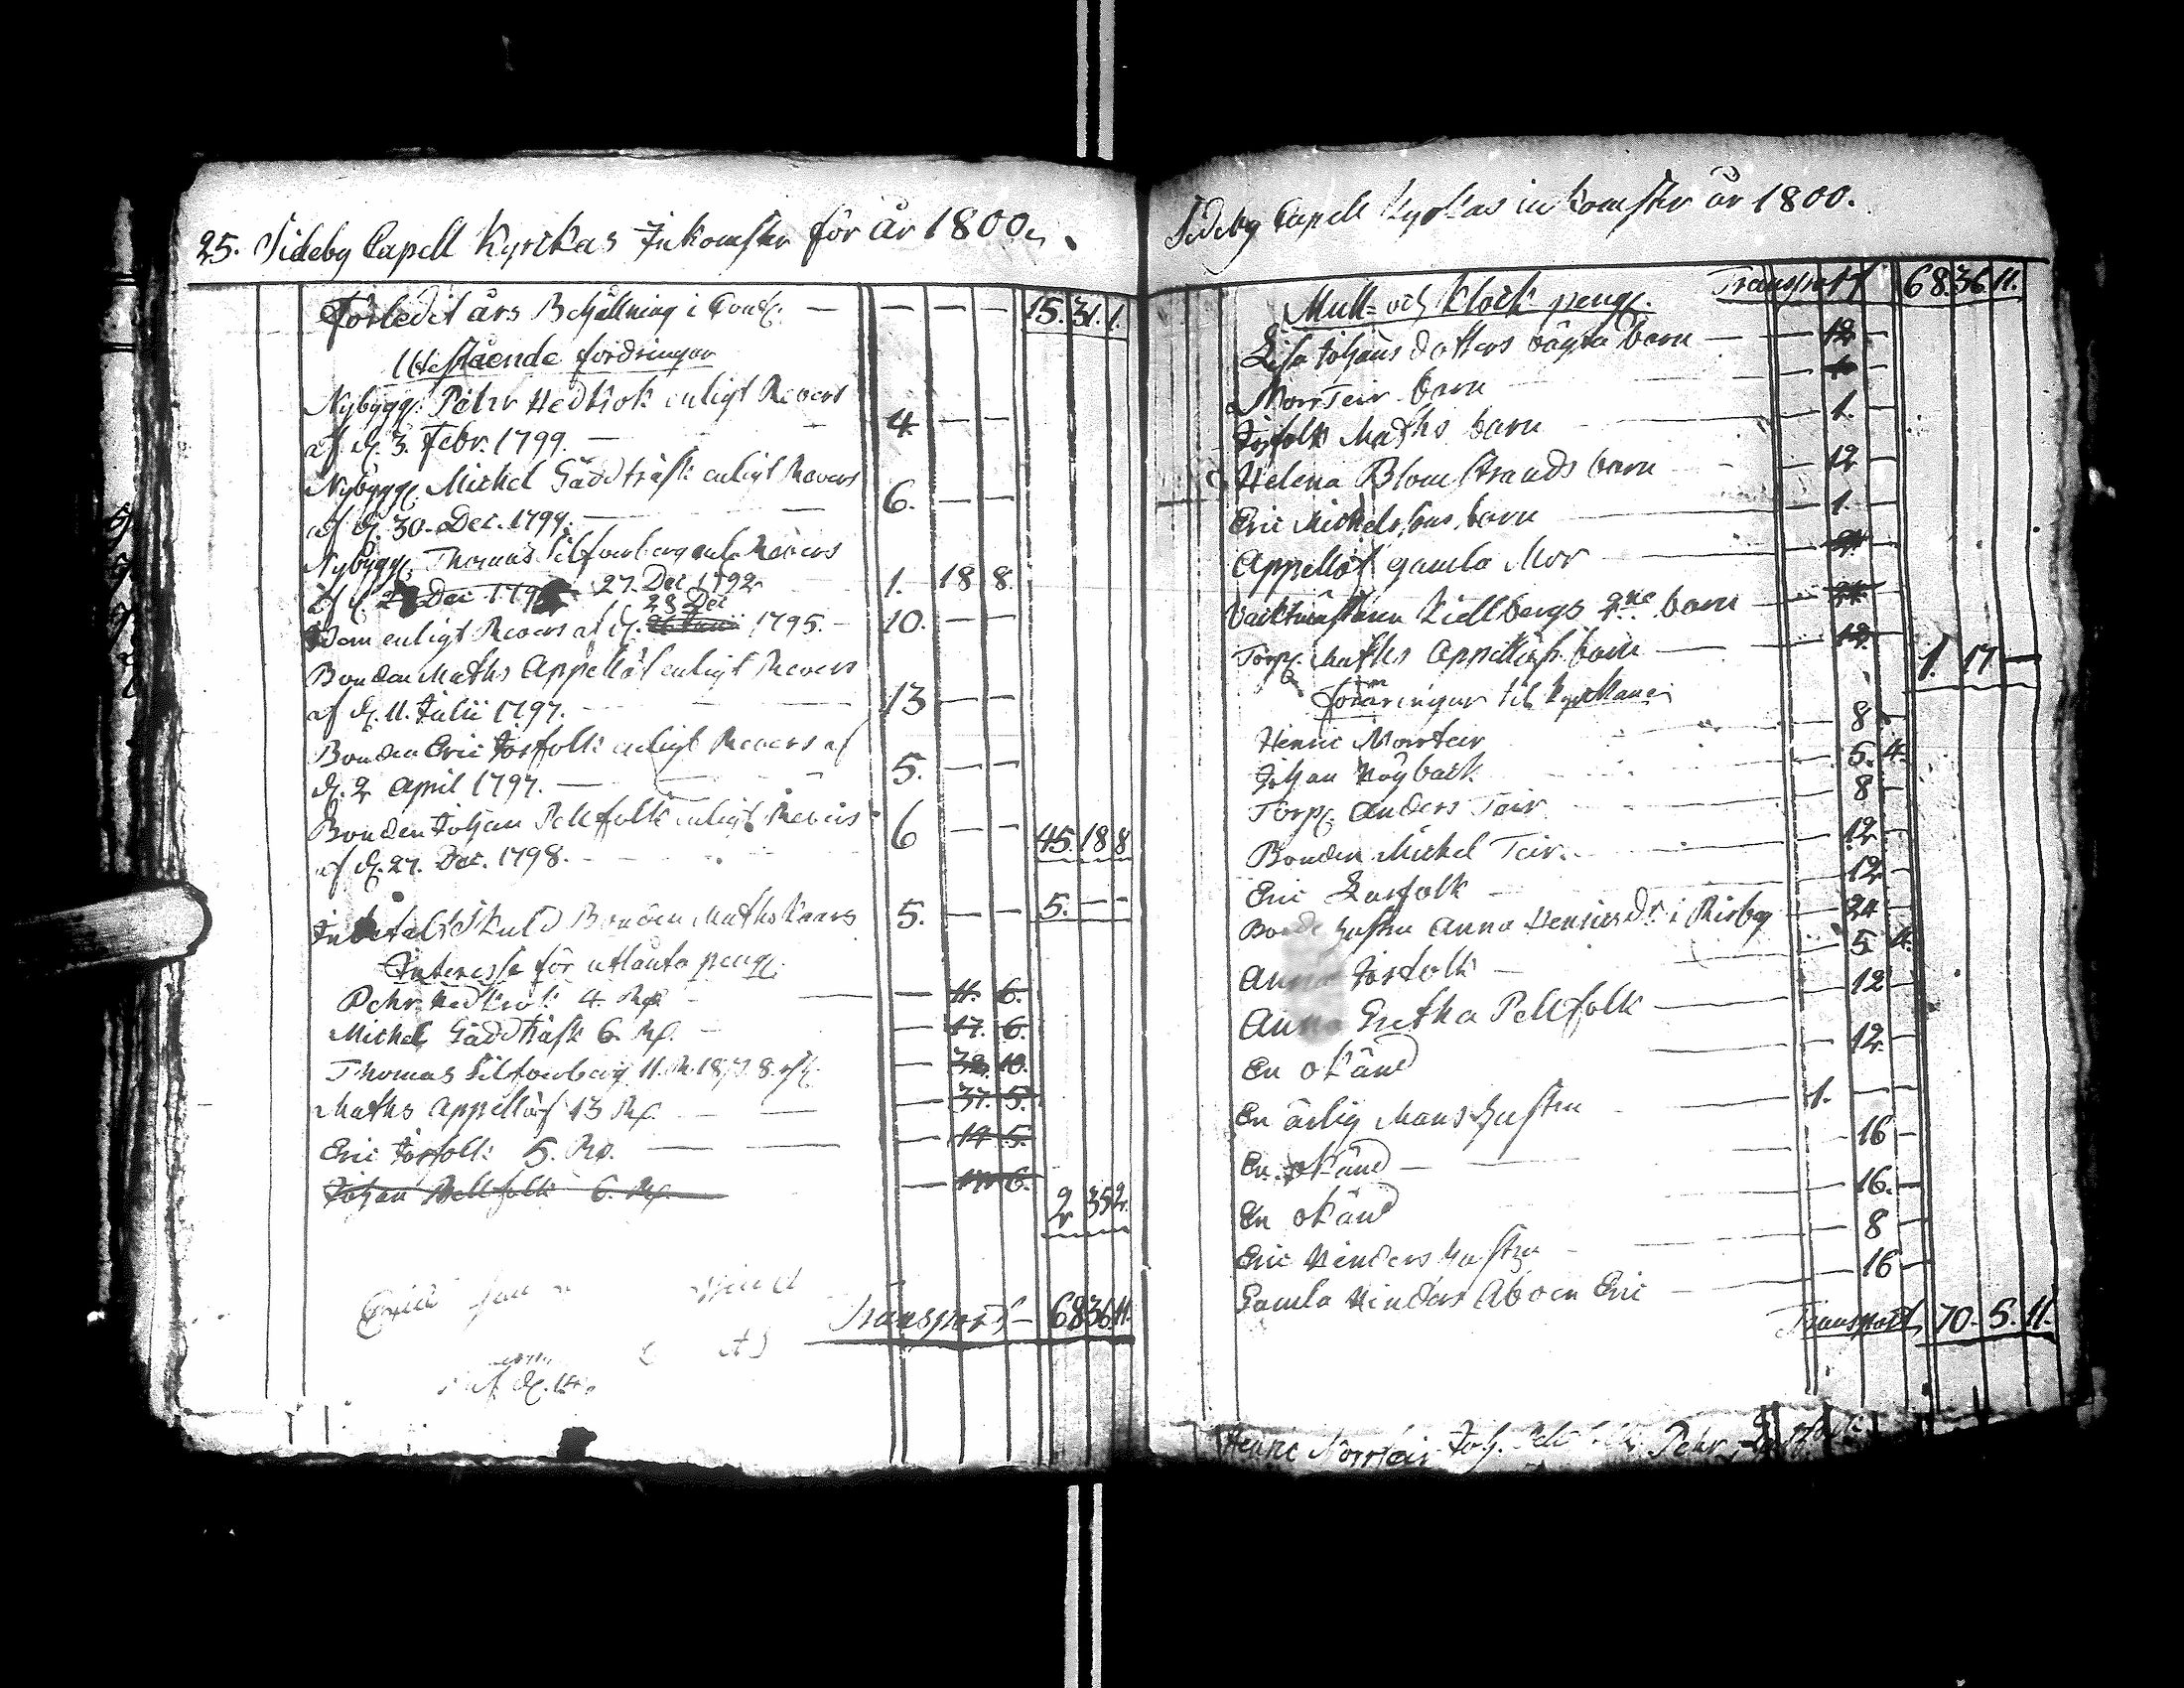 25. Sideby Capell Kyrckas Inkomster för år 1800.
Förledit års Behållning i Contf. — — — — 15. 31. 1.
Utestående fordringar
Nybygg. Pehr Hedkrok enligt Revers
af d. 3. Febr. 1799. — 4. — —
Nybygg. Michel Gäddträsk enligt Revers
af d. 30. Dec. 1799. — 6. — —
Nybygg. Thomas Silfverberg enl. Revers
af d. 27. Dec 1792 1. 18 8.
Dem enligt Revers af d. 28 Dec 1795. — 10. — —
Bonden Maths Appellöf enligt Revers
af d. 11. Julii 1797. — 13 — —
Bonden Eric Josfolk enligt Revers af
d. 2 April 1797. — 5. — —
Bonden Johan Pellfolk enligt Revers
af d. 27. Dec. 1798. 6 — — 45. 18 8
Inbetalt Skuld Bonden Maths Kaars 5. — — 5. — —
Interesse för utlånta peng.
Pehr Hedkrok 4. Rd — — 11. 6.
Michel Gäddträsk 6. Rd. — — 17. 6.
Thomas Silfverberg 11. R. 18 8. — 10.
Maths Appellöf 13 Rd. — — 37. 5.
Eric Josfolk 5. Rd. — — 14 5.
Johan Pellfolk 6. Rd. — 6.
2 35 2.
Transport — 68 36 11.
af d. 14
Sideby Capell Kyrkas inkomster år 1800.
Transport 68. 36. 11.
Mull- och Klock peng.
Lisa Johans dotters oägta barn — — 12 —
Norrteir barn — —
Josfolk Maths barn — — 1. —
Helena Blomstrands barn — — 12 —
Eric Michelssons barn — — 1. —
Appellöf gamla Mor — — 24 —
Vacktmästaren Kiellbergs 2ne barn — — 24 —
Torp. Maths Appellöfs barn — — 12. 1. 17 —
foräringar til kyrckan
Henric Norrteir — 8. —
Johan Högback — 5. 4.
Torp. Anders Teir — 8 —
Bonden Michel Teir. — 12 —
Eric Lasfolk — 12 —
Bonde hustru Anna Henricsdr. i Risby — 24 —
Anna Josfolk — 5 4.
Anna Gretha Pellfolk — 12 —
En okänd — 12. —
En ärlig Mans hustru — 1. — —
En okänd — — 16 —
En okänd — 16. —
Eric Hinders hustru — 8 —
Gamla Hinders Aboen Eric — 16 —
Transport 70. 5. 11.
Henric Norrteir Joh. Pellfolk Pehr